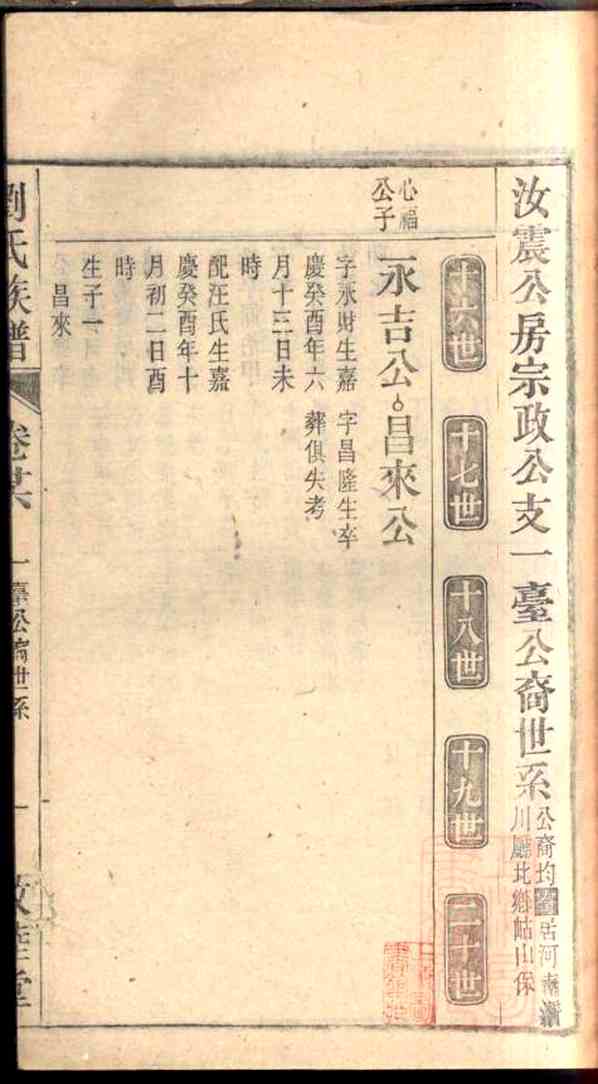 汝震公房宗政公支一臺公裔世系
公裔均
居河南淅
川廳北鄉岵山保
十六世
十七世
十八世
十九世
二十世
心福
公子
永吉公
昌來公
字永財生嘉
慶癸酉年六
月十三日未
時
配汪氏生嘉
慶癸酉年十
月初二日酉
時
生子一
昌來
字昌隆生卒
葬俱失考
劉氏族譜
卷廿六
一臺公裔世系
一